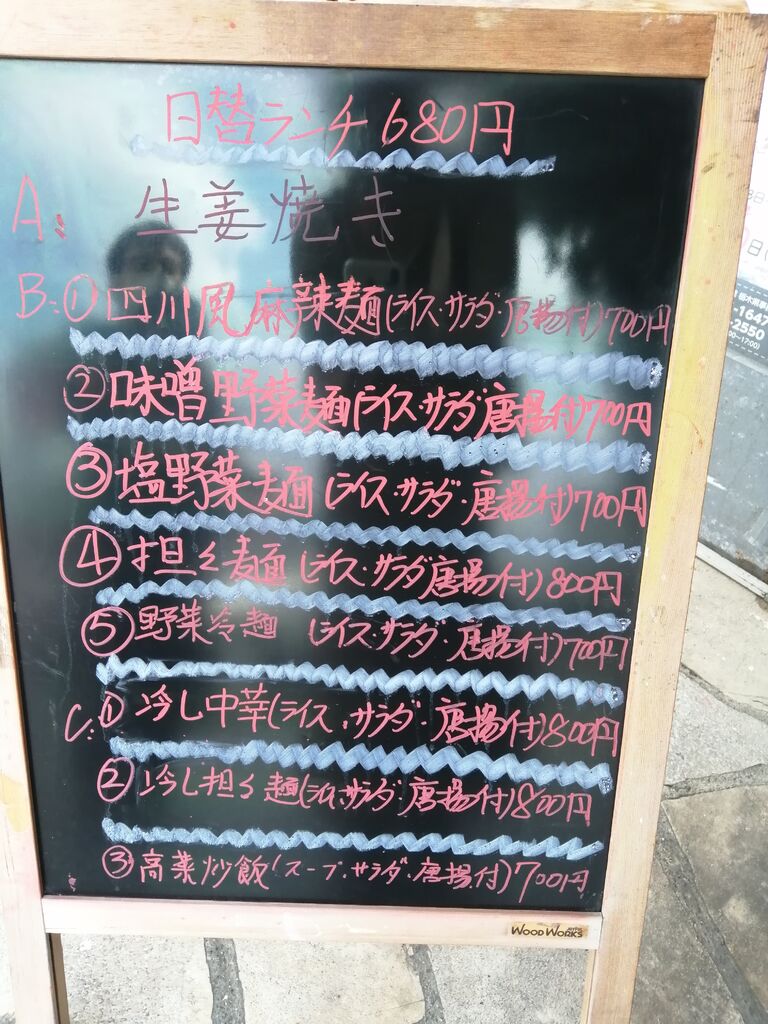 日替ランチ 680円
A: 生姜焼き
B:① 四川風麻辣麺(ライス・サラダ・唐揚付)700円
②味噌野菜麺(ライス・サラダ唐揚付)700円
③塩野菜麺(ライス・サラダ・唐揚付)700円
④担々麺(ライス・サラダ唐揚付)800円
⑤野菜冷麺(ライス・サラダ・唐揚付)700円
C:①冷し中華(ライス・サラダ・唐揚付)800円
②冷し担々麺(ライス・サラダ・唐揚付)800円
③高菜炒飯(スープ・サラダ・唐揚付)700円
WOOD WORKS
1647
-2550